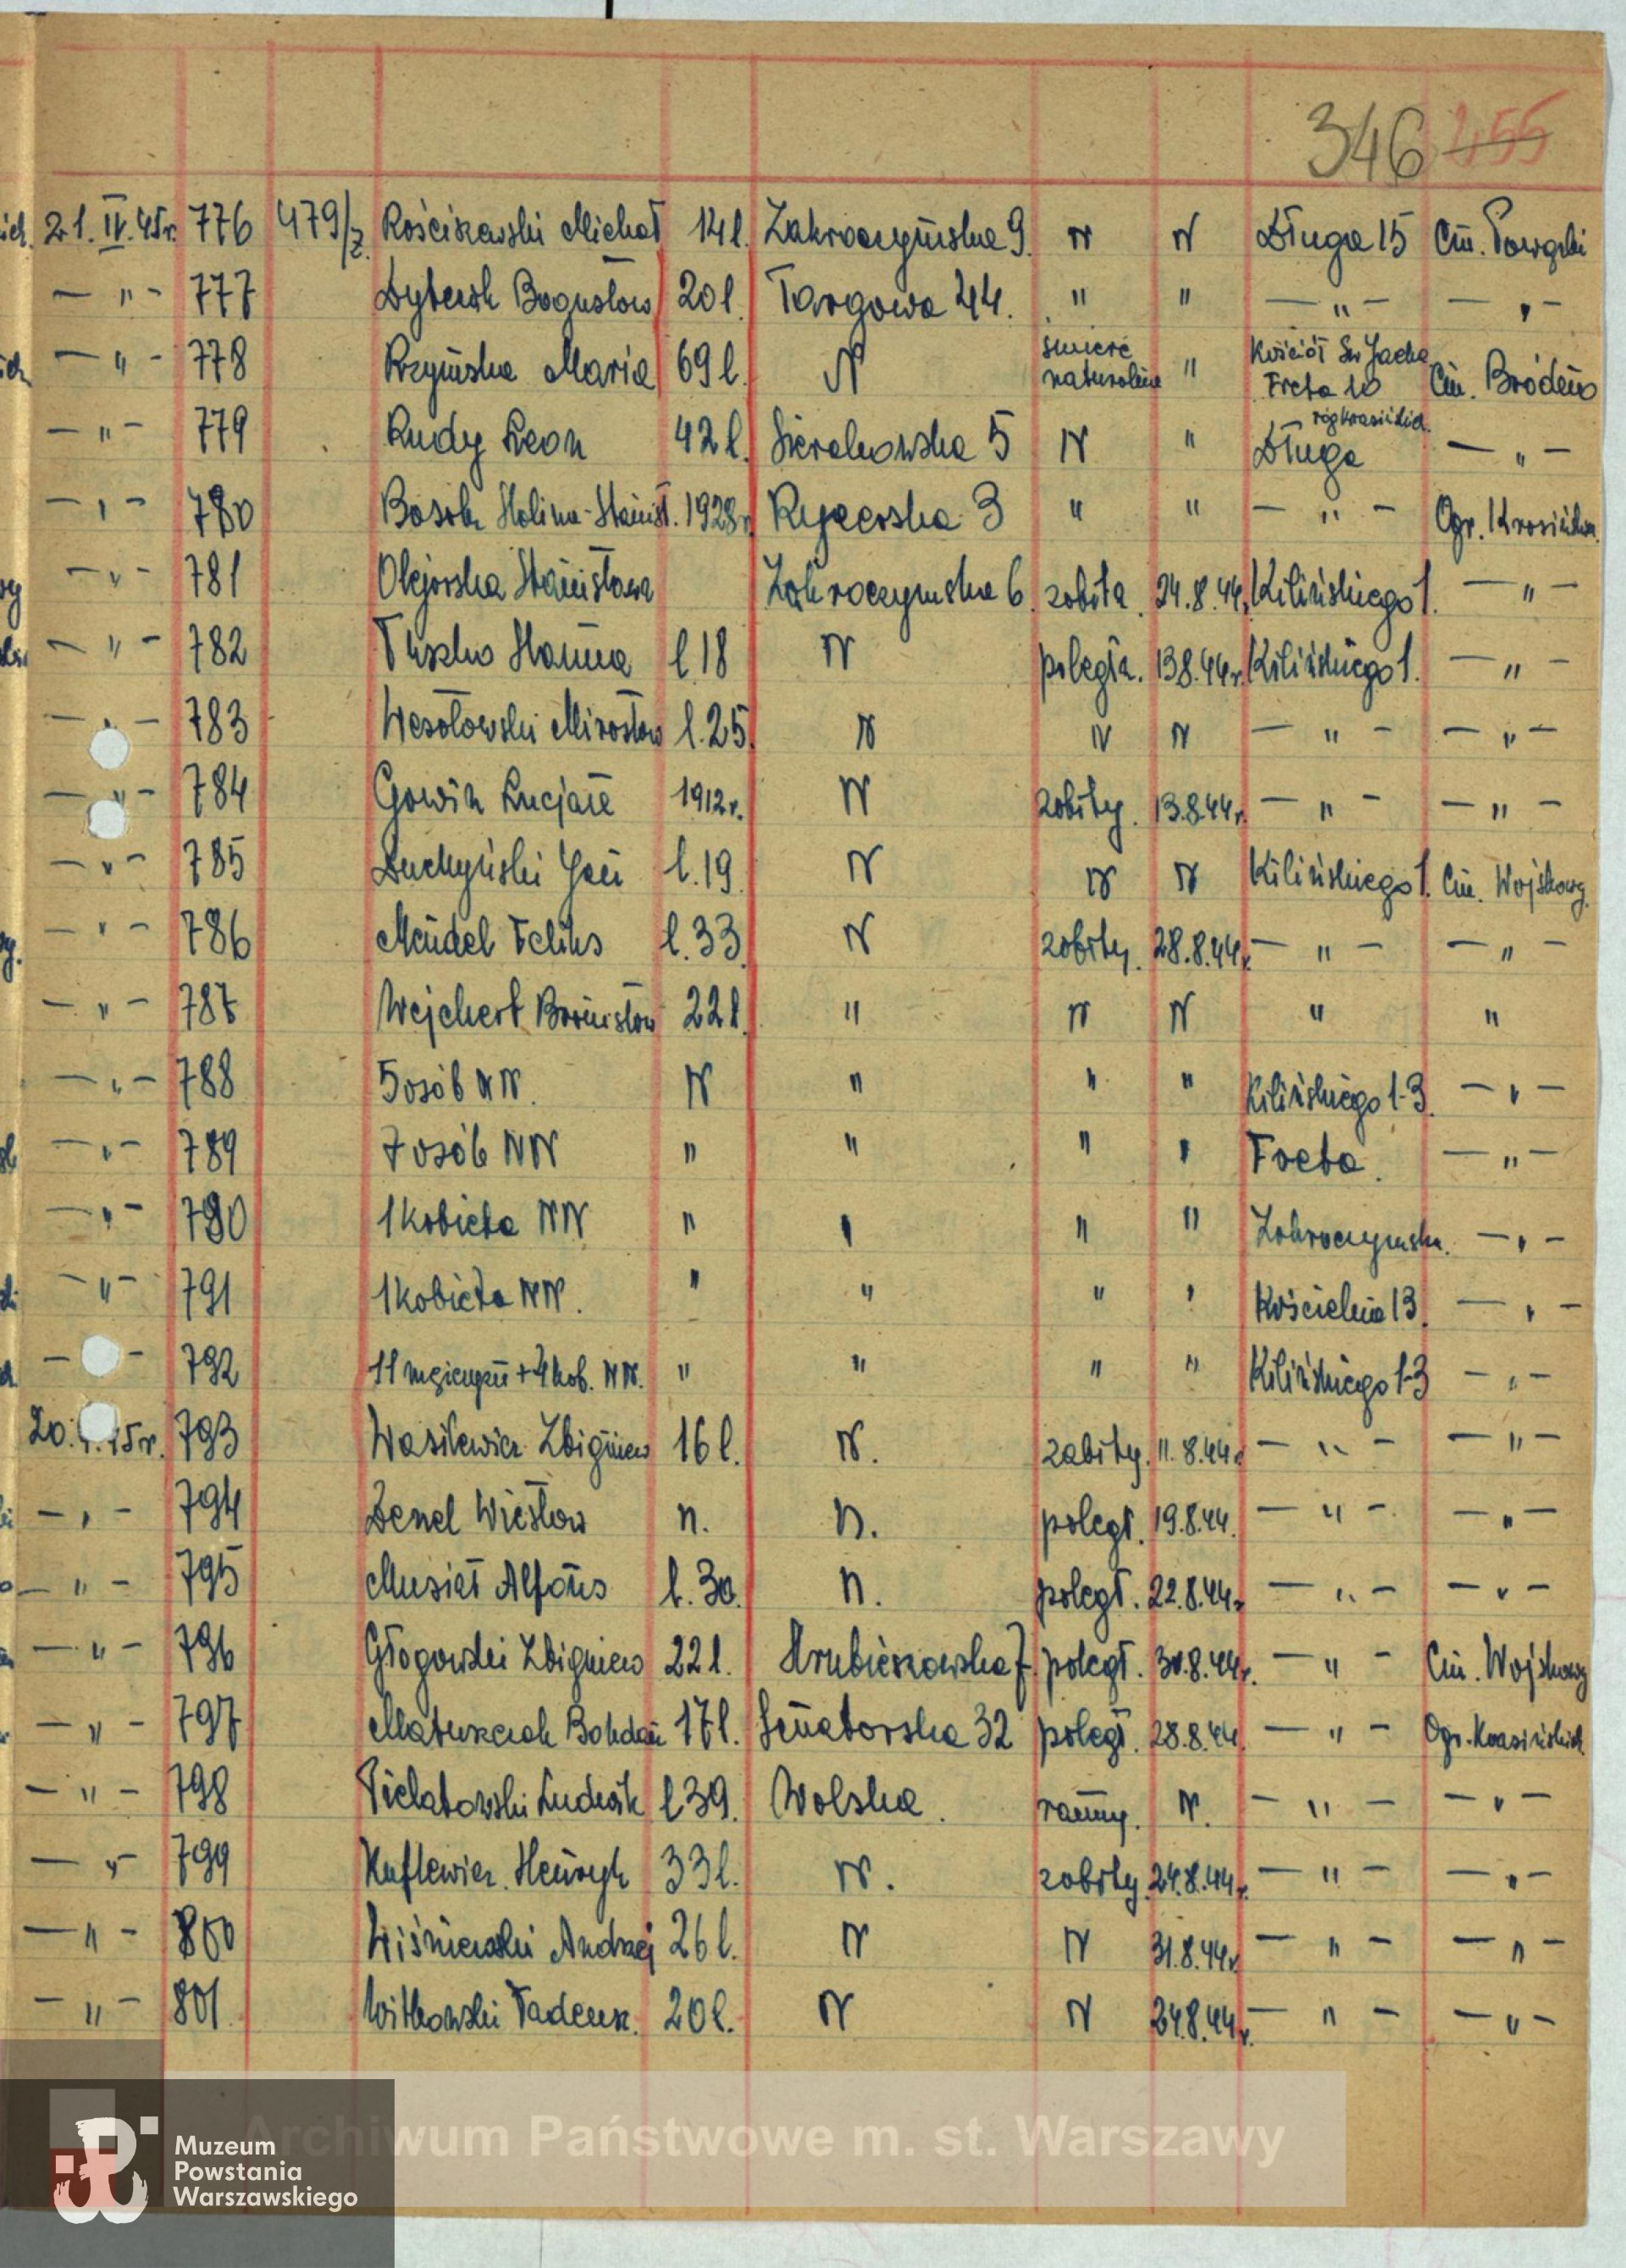 346 255
21.IV.45r. 776 479/z. Rościszewski Michał 14l. Zakroczymska 9. N N Długa 15 Cm. Powązki
— " - 777 Bogusław 20l. Targowa 44. " " — " - — " -
— " - 778 Rzymska Maria 69l. N śmierć naturalna " Kościół Św Jacka Freta 10 Cm. Bródno
— " - 779 Rudy Leon 42l. Sierakowska 5 N " Długa róg Krasińskich. — " -
— " - 780 Halina-Stanisł. 1928r. Rycerska 3 " " — " - Ogr. Krasińskich.
— " - 781 Olejorska Stanisława Zakroczymska 6. zabita. 24.8.44. Kilińskiego 1. — " -
— " - 782 Hanna l.18 N poległa. 13.8.44r. Kilińskiego 1. — " -
— " - 783 Wesołowski Mirosław l.25. N N N — " - — " -
— " - 784 Gowin Lucjan 1912r. N zabity. 13.8.44r. — " - — " -
— " - 785 Duchyński Jan l.19. N N N Kilińskiego 1. Cm. Wojskowy.
— " - 786 Mendel Feliks l.33. N zabity. 28.8.44r. — " - — " -
— " - 787 Wejchert Bronisław 22l. " N N " "
— " - 788 5 osób NN. N " " " Kilińskiego 1-3. — " -
— " - 789 7 osób NN " " " " Freta. — " -
— " - 790 1 kobieta NN " " " " Zakroczymska. — " -
— " - 791 1 kobieta NN. " " " " Kościelna 13. — " -
— - 792 11 mężczyzn + 4 kob. NN. " " " " Kilińskiego 1-3 — " -
20. 45r. 793 Wasilewicz Zbigniew 16l. N. zabity. 11.8.44r. — " - — " -
— " - 794 Wiesław n. n. poległ. 19.8.44. — " - — " -
— " - 795 Musiał Alfons l.30. n. poległ. 22.8.44r. — " - — " -
— " - 796 Głogowski Zbigniew 22l. Hrubieszowska 7 poległ. 30.8.44r. — " - Cm. Wojskowy
— " - 797 Matuszczak Bohdan 17l. Senatorska 32 poległ. 28.8.44. — " - Ogr. Krasińskich
— " - 798 Pielatowski Ludwik l39. Wolska. ranny. N. — " - — " -
— " - 799 Kuflewicz Henryk 33l. N. zabity. 24.8.44r. — " - — " -
— " - 800 Wiśniewski Andrzej 26l. N N 31.8.44r. — " - — " -
— " - 801. Witkowski Tadeusz. 20l. N N 24.8.44r. — " - — " -
Archiwum Państwowe m. st. Warszawy
Muzeum
Powstania
Warszawskiego